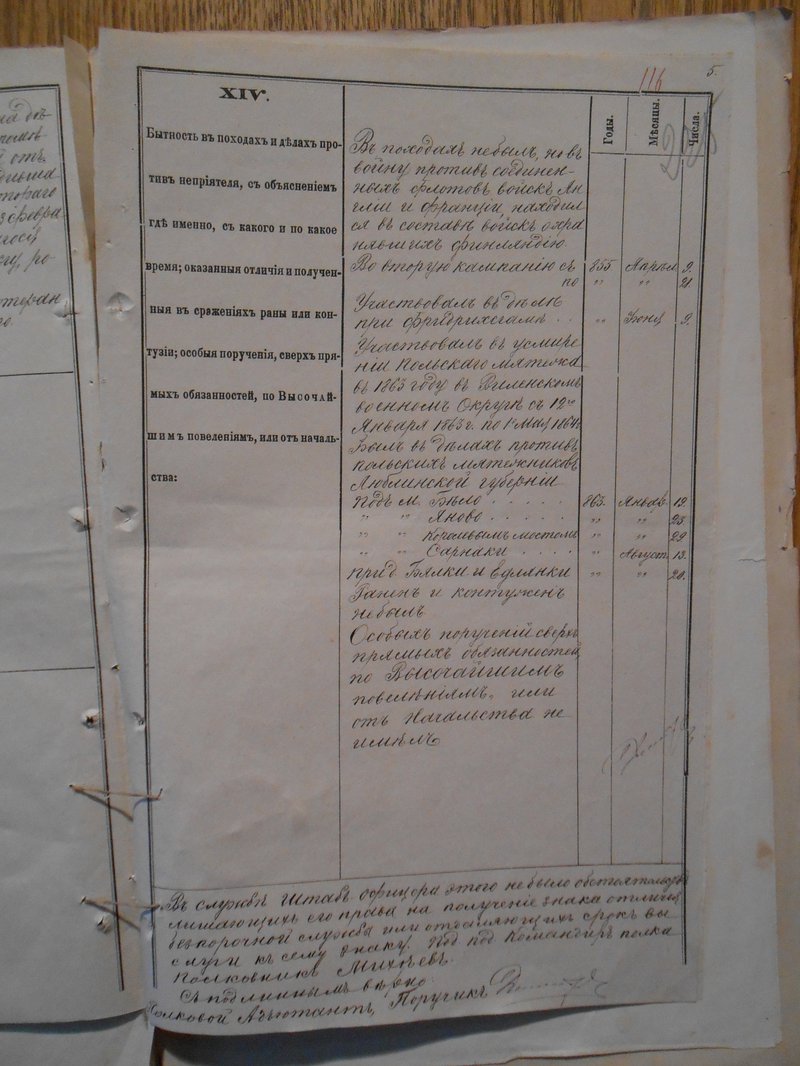 116
5.
XIV.
Годы.
Мѣсяцы.
Числа.
Бытность въ походахъ и дѣлахъ про-
тивъ непріятеля, съ объясненіемъ
гдѣ именно, съ какого и по какое
время; оказанныя отличія и получен-
ныя въ сраженіяхъ раны или кон-
тузіи; особыя порученія, сверхъ пря-
мыхъ обязанностей, по Высочай-
шимъ повеленіямъ, или отъ началь-
ства:
Въ походахъ небылъ, но въ
войну противъ соединен-
ныхъ флотовъ войскъ Ан-
гліи и Франціи, находил-
ся въ составѣ войскъ охра
нявшихъ Финляндію.
Во вторую кампанію съ 855 Апрѣл. 9.
по " " 21.
Участвовалъ въ дѣлѣ
при Фридрихсгамѣ . . " Іюня 9.
Участвовалъ въ усмире
ніи Польскаго мятежа
въ 1863 году въ Виленскомъ
военномъ Округѣ съ 12го
Января 1863 г. по 1е Мая 1864
Былъ въ дѣлахъ противъ
польскихъ мятежниковъ
Люблинской губерніи
Подъ м. Бѣло . . . . . 863. Январ. 19.
" " Яново . . . . . " " 25.
" " мостомъ " " 29
" " Сарнаки . . . . " Август. 13.
при д. Бялки и вдлянки " " 20.
Раненъ и контуженъ
небылъ
Особыхъ порученій сверхъ
прямыхъ обязанностей
по Высочайшимъ
повелѣніямъ, или
отъ Начальства не
имѣлъ.
Въ службѣ Штабъ Офицера этого небыло обстоятельствъ
лишающихъ его права на полученіе знака отличія
безпорочной службы или отдаляющихъ срокъ вы
слуги къ сему знаку. Под под Командиръ полка
Полковникъ Михѣевъ.
Съ подлиннымъ вѣрно:
Полковой Адъютантъ, Поручикъ